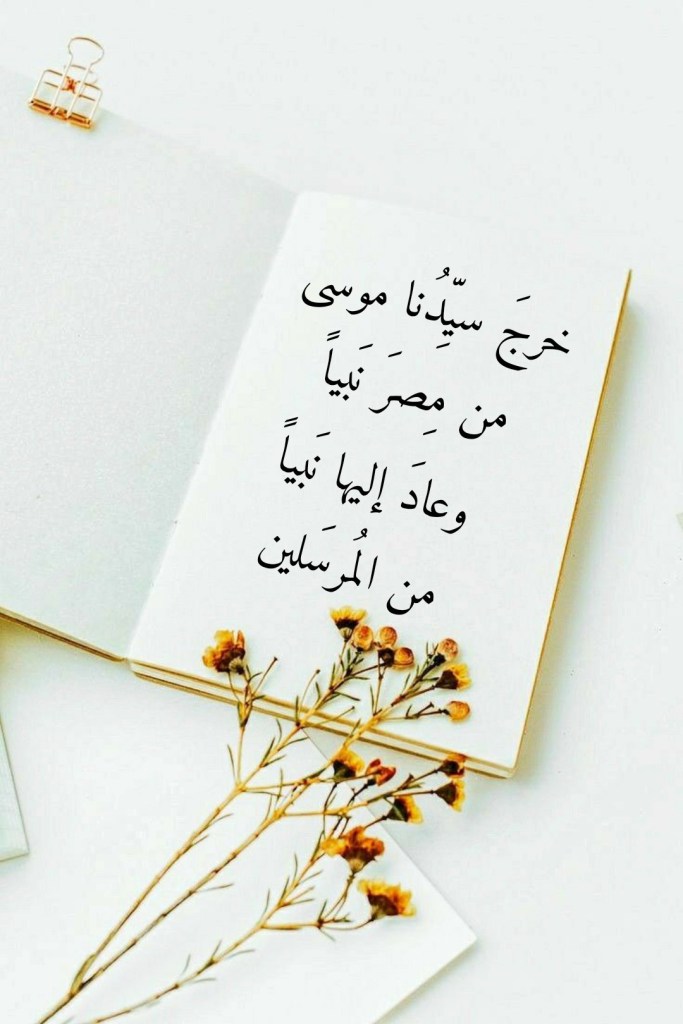 خرجَ سيِّدُنا موسى
من مِصرَ نَبياً
وعادَ إليها نَبياً
من المُرسَلين